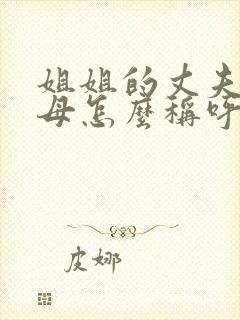 姐姐的丈夫
母怎麼稱呼
皮娜